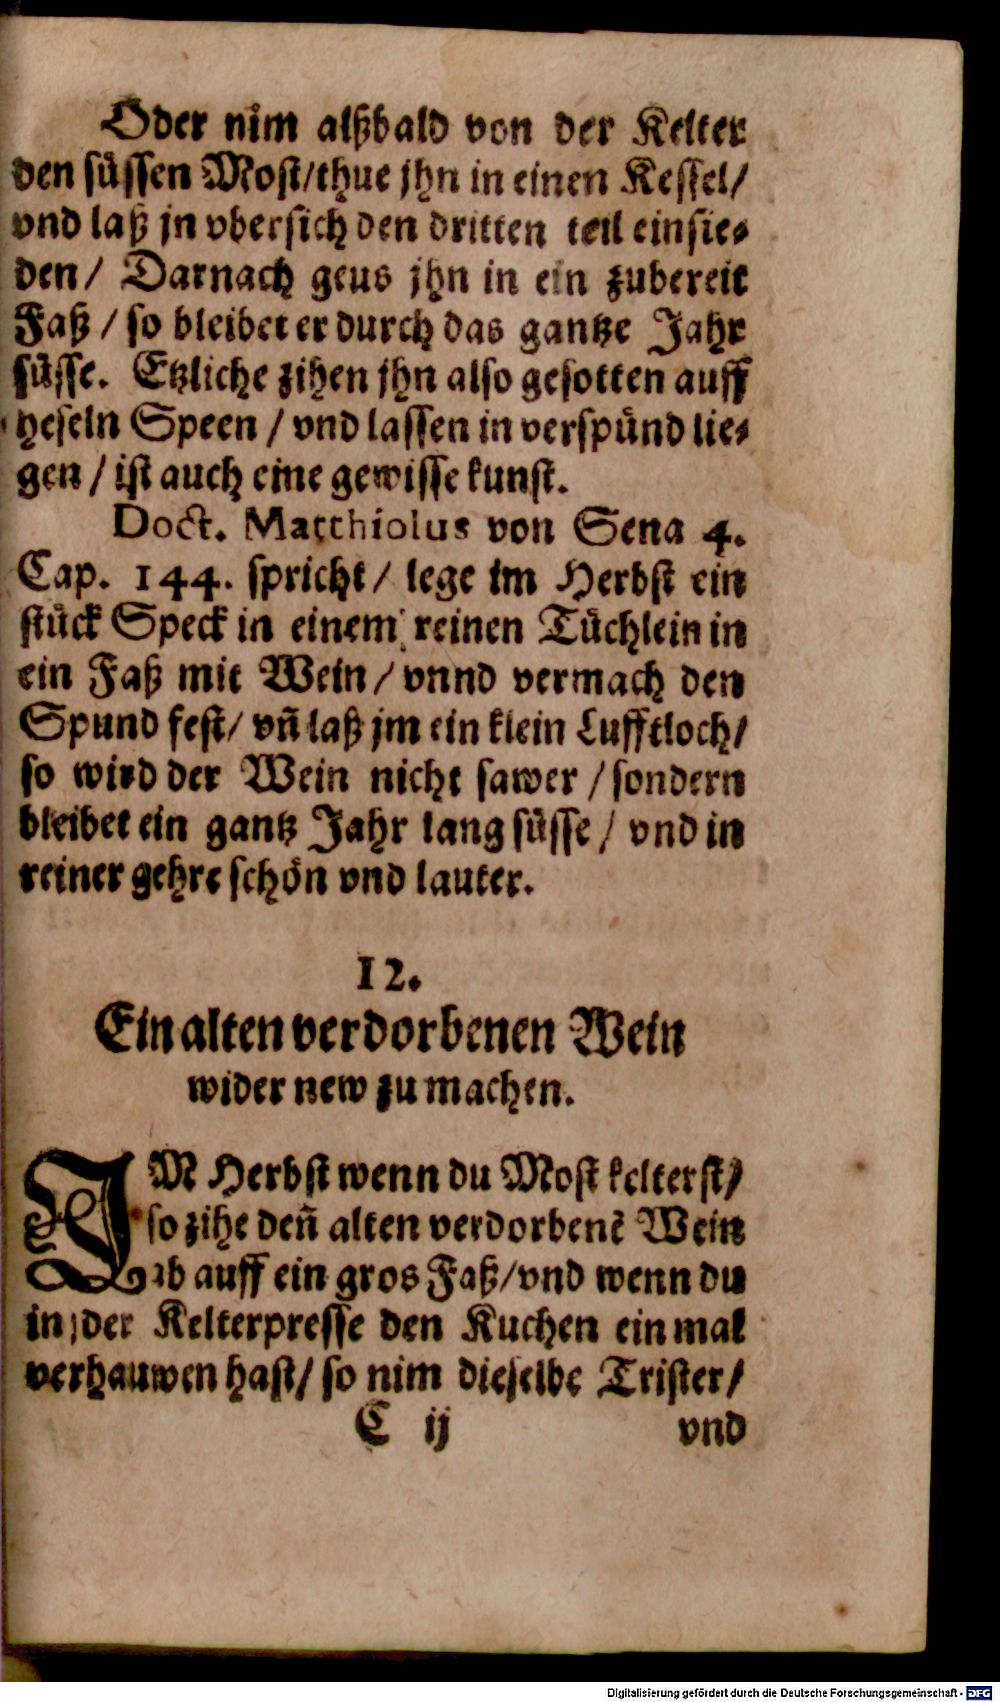 Oder nim alßbald von der Kelter
den süssen Most/thue jhn in einen Kessel/
vnd laß jn vbersich den dritten teil einsie-
den/ Darnach geus jhn in ein zubereit
Faß / so bleibet er durch das gantze Jahr
süsse. Etzliche zihen jhn also gesotten auff
heseln Speen / vnd lassen in verspünd lie-
gen / ist auch eine gewisse kunst.
Doct. Matthiolus von Sena 4.
Cap. 144. spricht/ lege im Herbst ein
stück Speck in einem reinen Tüchlein in
ein Faß mit Wein/ vnnd vermach den
Spund fest/ vñ laß jm ein klein Lufftloch/
so wird der Wein nicht sawer / sondern
bleibet ein gantz Jahr lang süsse / vnd in
reiner gehre schön vnd lauter.
12.
Ein alten verdorbenen Wein
wider new zu machen.
IM Herbst wenn du Most kelterst/
so zihe deñ alten verdorbenē Wein
ab auff ein gros Faß/vnd wenn du
in der Kelterpresse den Kuchen ein mal
verhauwen hast/ so nim dieselbe Trister/
C ij vnd
Digitalisierung gefördert durch die Deutsche Forschungsgemeinschaft - DFG